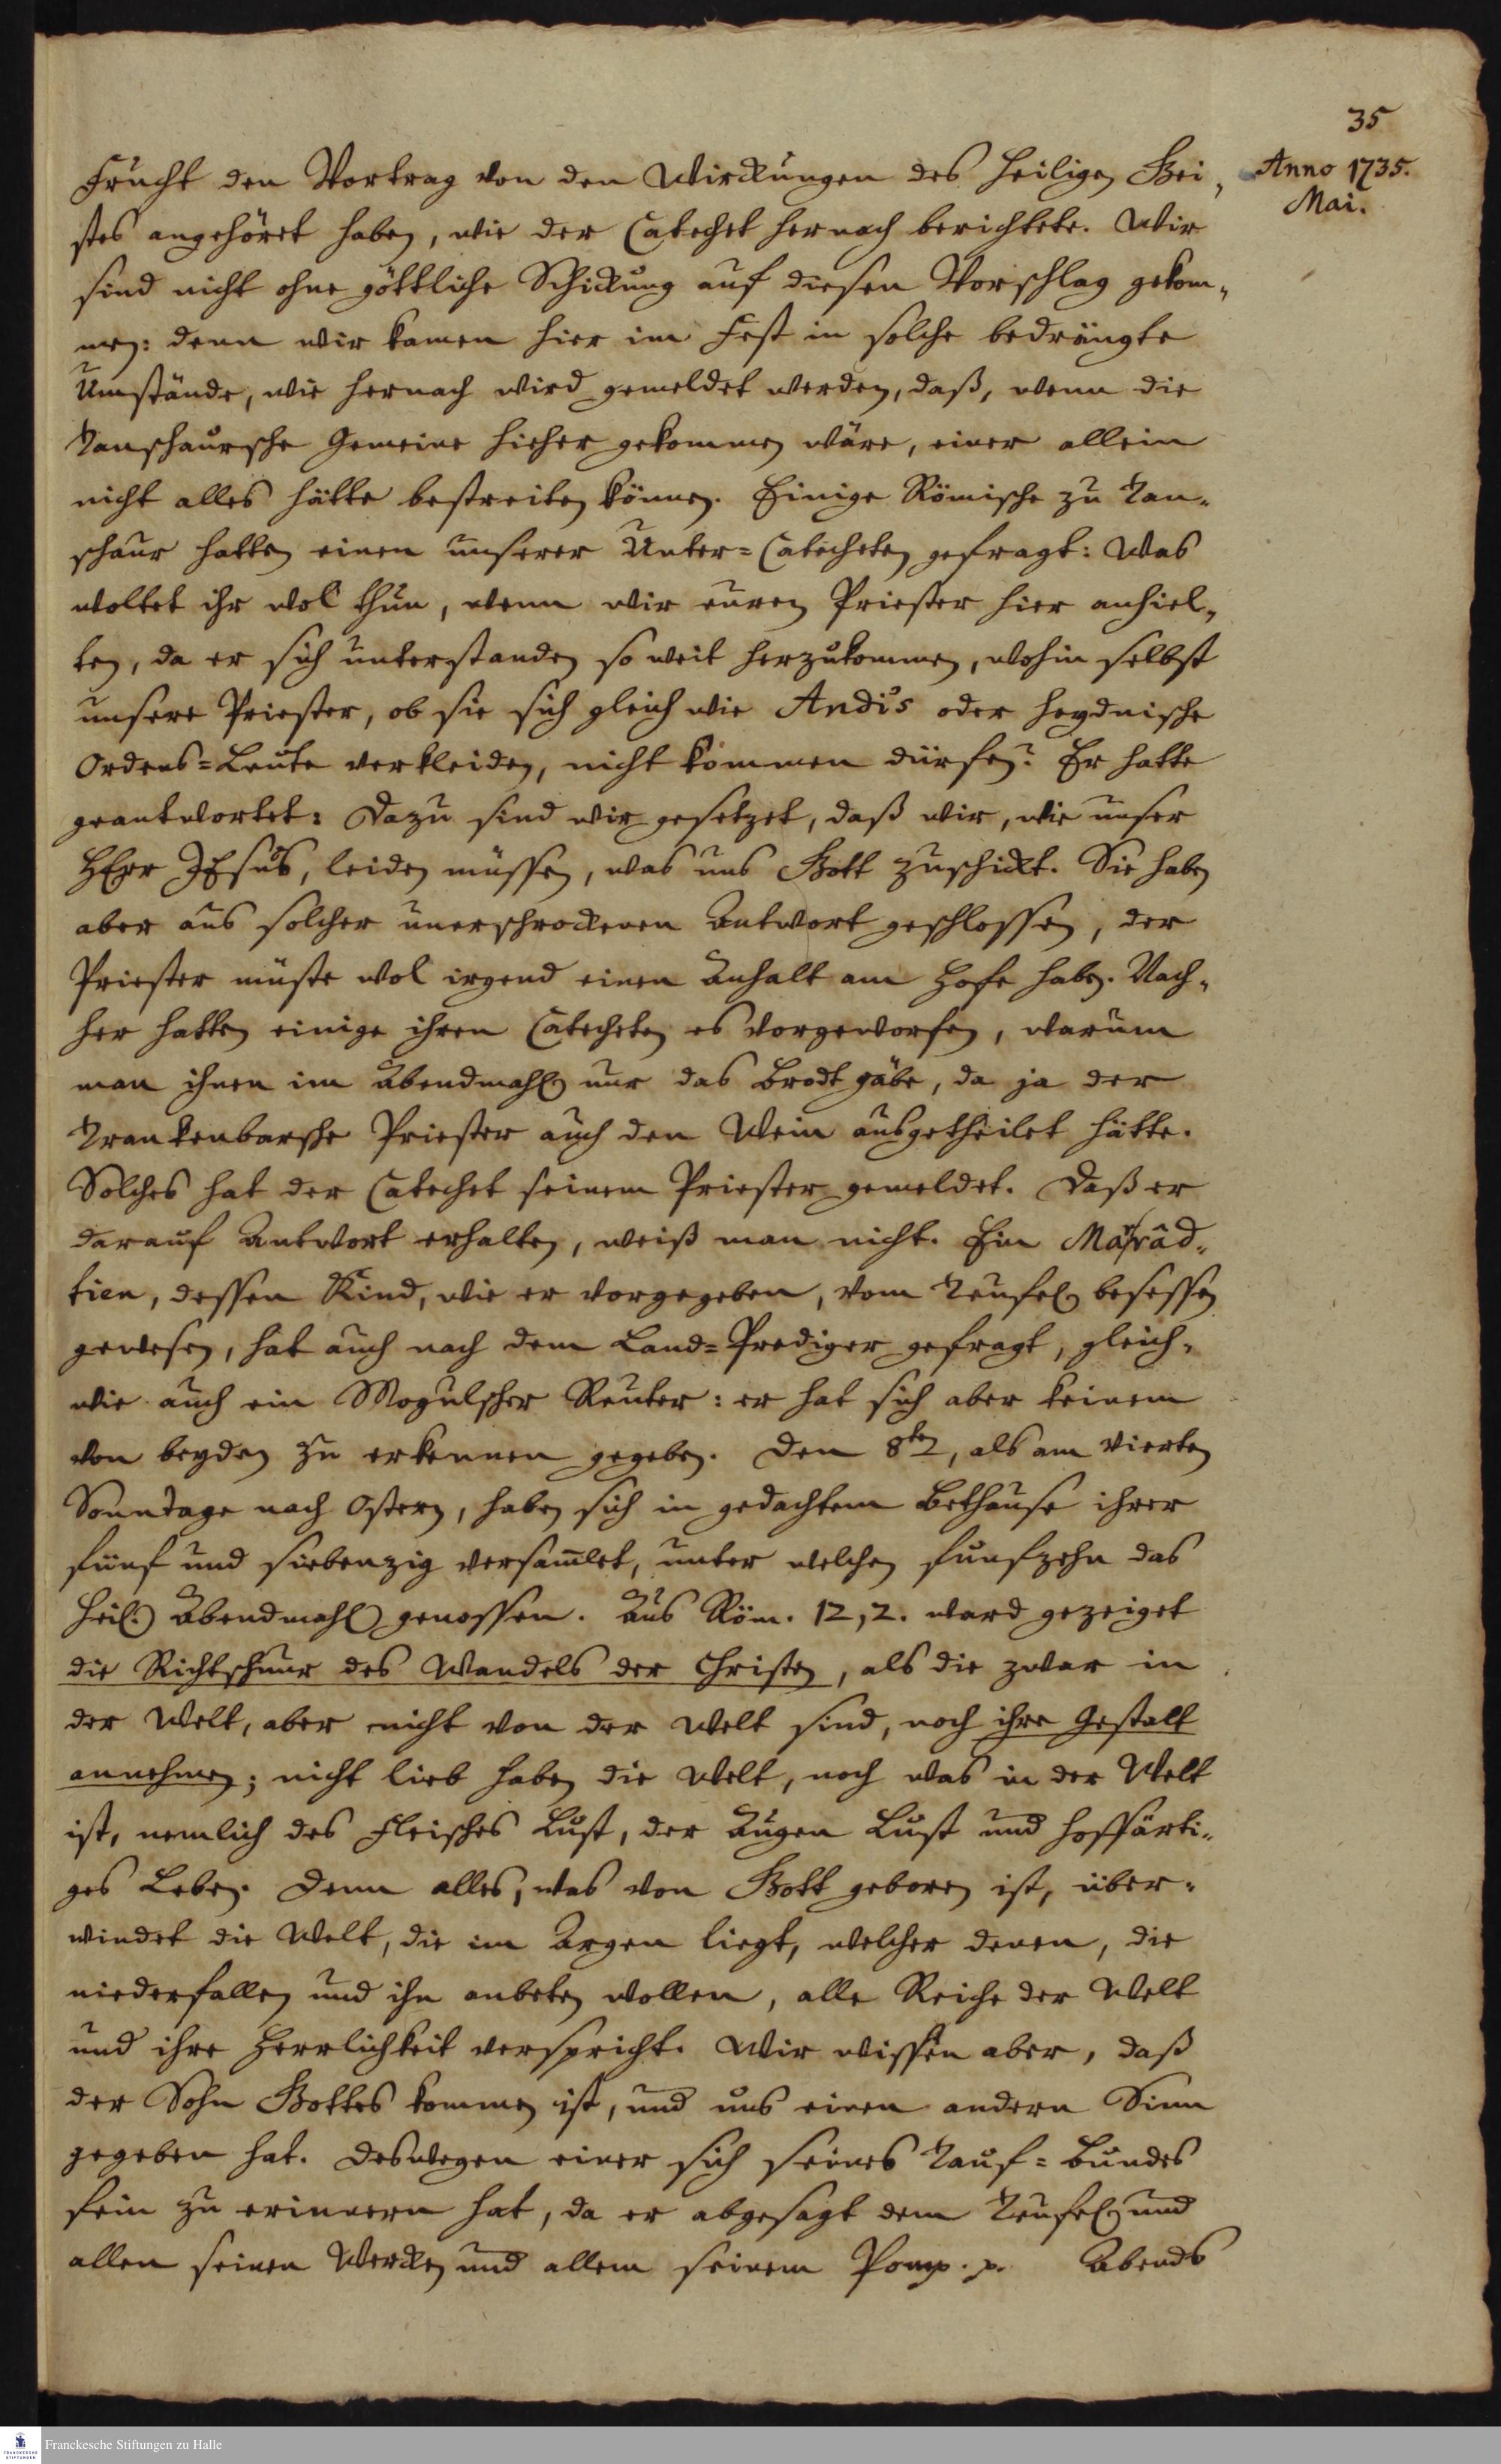 35
Anno 1735.
Mai.
Frucht den Vortrag von den Wirckungen des Heiligen Gei-
stes angehöret haben, wie der Catechet hernach berichtete. Wir
sind nicht ohne göttliche Schickung auf diesen Vorschlag gekom-
men: denn wir kamen hier im Fest in solche bedrängte
Umstände, wie hernach wird gemeldet werden, daß, wenn die
Tanschaursche Gemeine hieher gekommen wäre, einer allein
nicht alles hätte bestreiten können. Einige Römische zu Tan-
schaur hatten einen unserer Unter-Catecheten gefragt: Was
woltet ihr wol thun, wenn wir euren Priester hier anhiel-
ten, da er sich unterstanden so weit herzukommen, wohin selbst
unsere Priester, ob sie sich gleich wie Andis oder heydnische
Ordens-Leute verkleiden, nicht kommen dürfen? Er hatte
geantwortet: Dazu sind wir gesetzet, daß wir, wie unser
HErr JEsus, leiden müssen, was uns Gott zuschickt. Sie haben
aber aus solcher unerschrockenen Antwort geschlossen, der
Priester müste wol irgend einen Anhalt am Hofe haben. Nach-
her hatten einige ihren Catecheten es vorgeworfen, warum
man ihnen im Abendmahl nur das Brodt gäbe, da ja der
Trankenbarsche Priester auch den Wein ausgetheilet hätte.
Solches hat der Catechet seinem Priester gemeldet. Daß er
darauf Antwort erhalten, weiß man nicht. Ein
tien, dessen Kind, wie er vorgegeben, vom Teufel besessen
gewesen, hat auch nach dem Land-Prediger gefragt, gleich-
wie auch ein Mogulscher Reuter: er hat sich aber keinem
von beyden zu erkennen gegeben. Den 8ten, als am vierten
Sonntage nach Ostern, haben sich in gedachtem Bethause ihrer
fünf und siebenzig versam̅let, unter welchen funfzehn das
Heil. Abendmahl genossen. Aus Röm. 12,2. ward gezeiget
die Richtschnur des Wandels der Christen, als die zwar in
der Welt, aber nicht von der Welt sind, noch ihre Gestalt
annehmen; nicht lieb haben die Welt, noch was in der Welt
ist, nemlich des Fleisches Lust, der Augen Lust und hoffärti-
ges Leben. Denn alles, was von Gott geboren ist, über-
windet die Welt, die im Argen liegt, welcher denen, die
niederfallen und ihn anbeten wollen, alle Reiche der Welt
und ihre Herrlichkeit verspricht. Wir wissen aber, daß
der Sohn Gottes kommen ist, und uns einen andern Sinn
gegeben hat. Deswegen einer sich seines Tauf-Bundes
fein zu erinnern hat, da er abgesagt dem Teufel und
allen seinen Wercken und allem seinem Pomp. p. Abends
Franckesche Stiftungen zu Halle